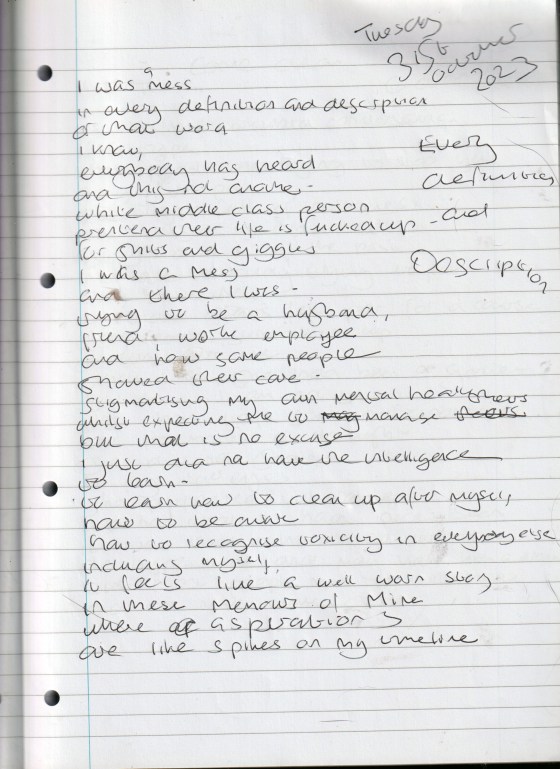 Tuesday
31st October
2023
I was a mess
in every definition and description
of that word
I know,
everybody has heard
and this not another
white middle class person
pretend their life is fucked up
for shits and giggles
Every
definition
and
Description
I was a mess
and there I was -
trying to be a husband,
friend, worthy employee
and how some people
showed their care -
stigmatising my own mental health
whilst expecting me to manage
but that is no excuse
I just did not have the intelligence
to learn -
to learn how to clean up after myself,
how to be aware
how to recognise toxicity in everyone else
including myself,
it feels like a well worn story
in these memories of mine
where aspirations
are like spikes on my timeline